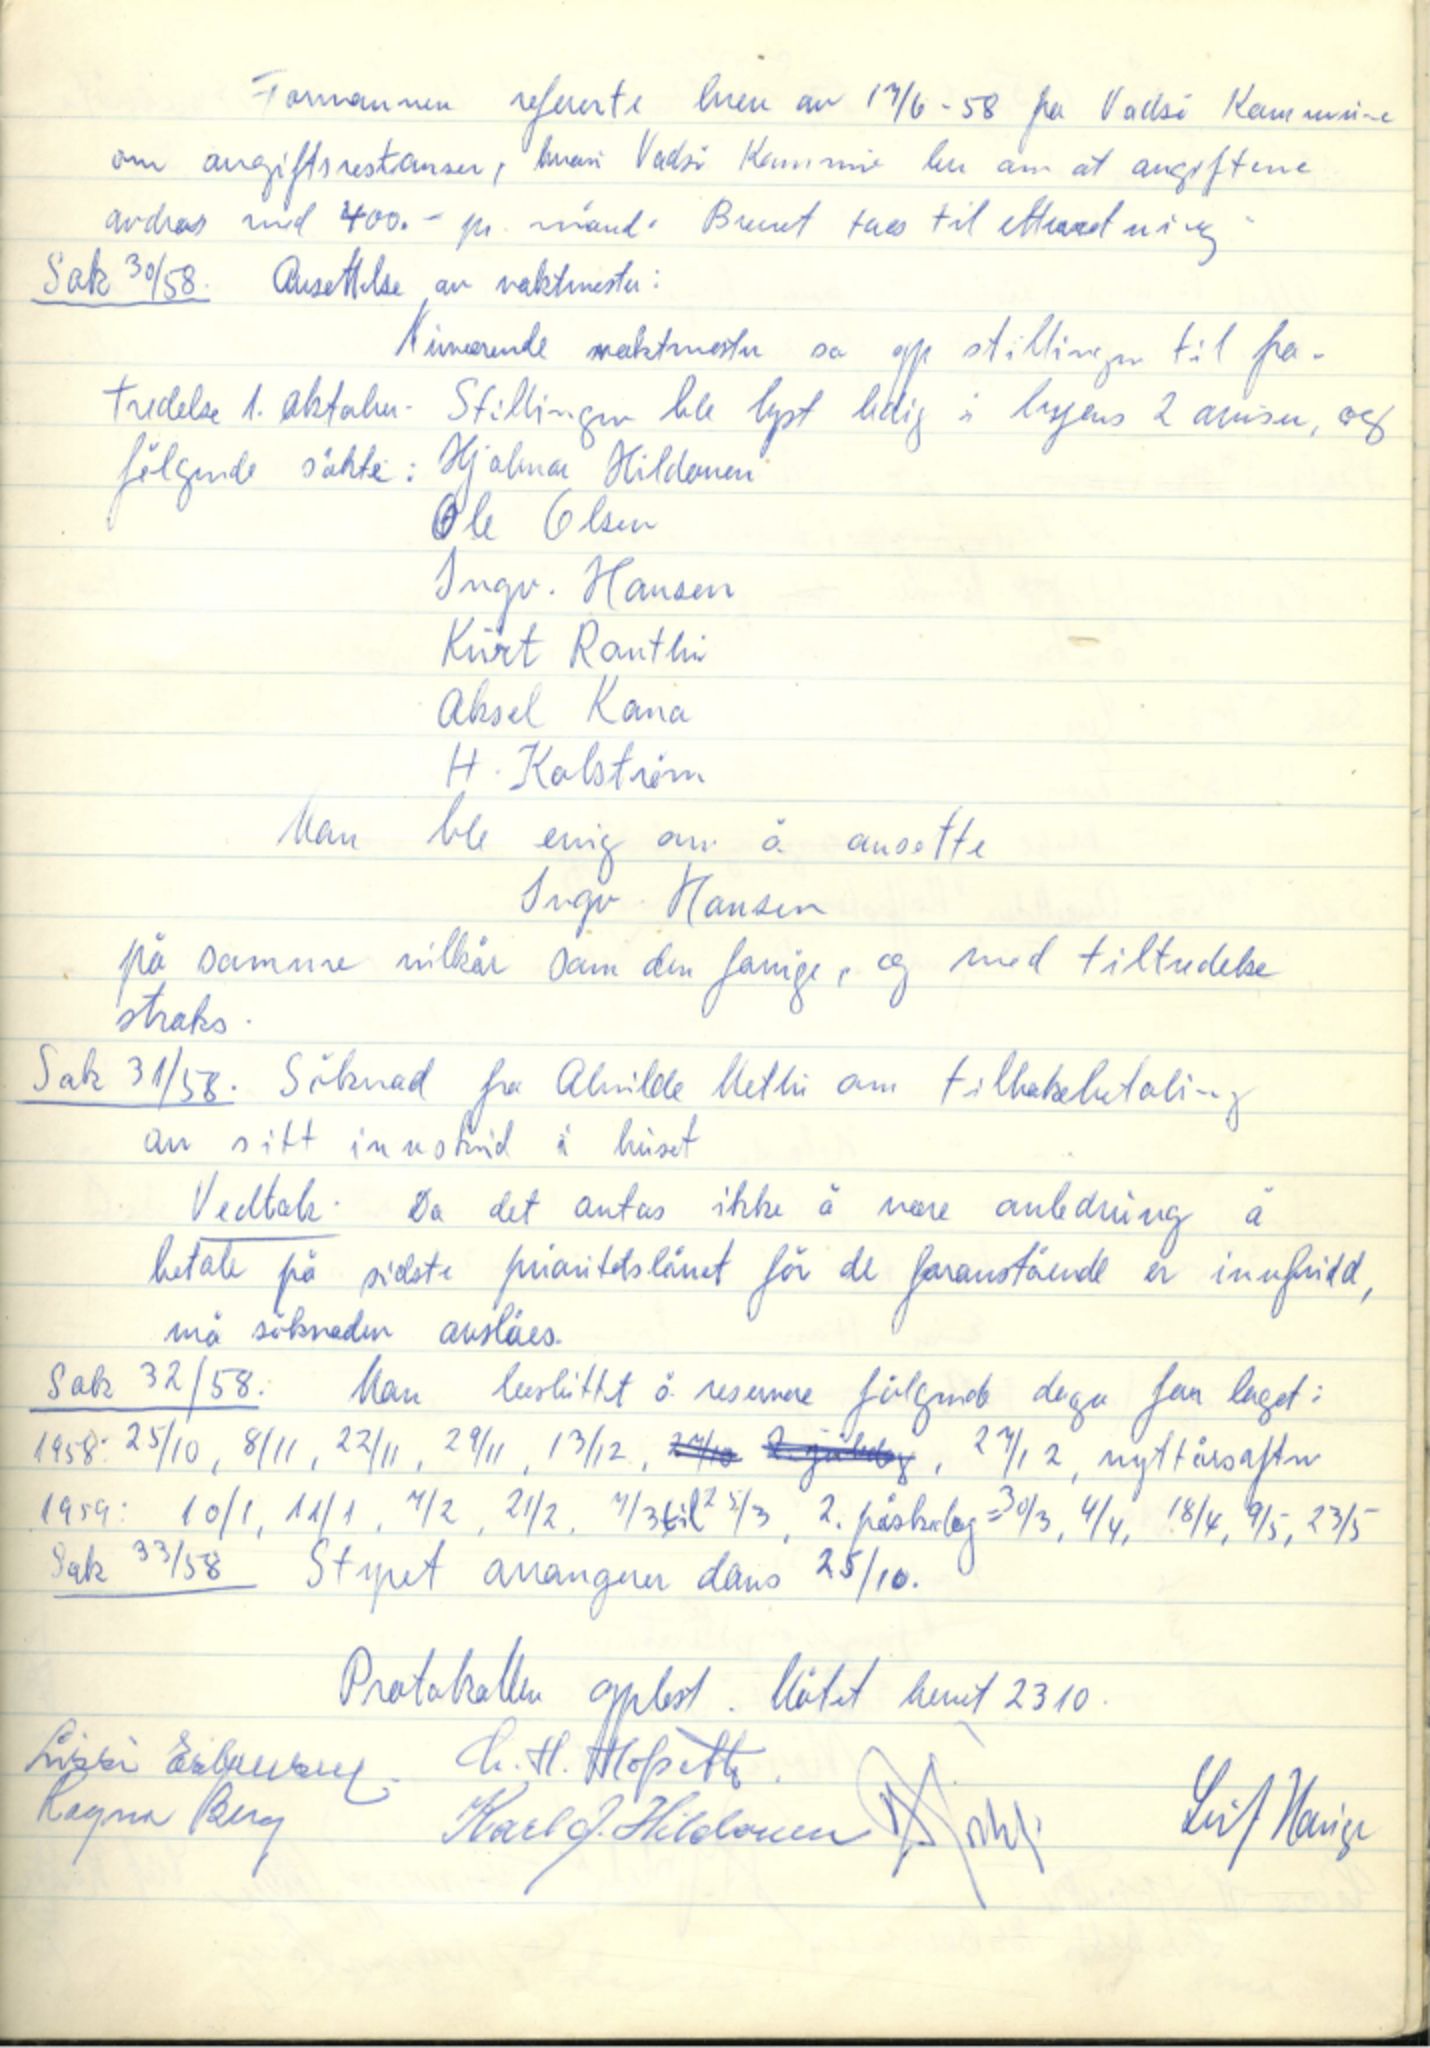 Formannen refererte brev av 17/6-58 fra Vadsö Kommune
om avgiftsrestanser, hvori Vadsö Kommune ber om at avgiftene
avdras med 400.- pr. månd. Brevet taes til etterretning
Sak 30/58. Ansettelse av vaktmester:
Nuværende vaktmester sa opp stillingen til fra-
tredelse 1. oktober. Stillingen ble lyst ledig i byens 2 aviser, og
fölgende sökte: Hjalmar Hildonen
Ole Olsen
Ingv. Hansen
Kurt Ranthi
Aksel Kana
H. Kalström
Man ble enig om å ansette
Ingv. Hansen
på samme vilkår som den forrige, og med tiltredelse
straks.
Sak 31/58. Söknad fra Alvilde Methi om tilbakebetaling
av sitt innskud i huset
Vedtak. Da det antas ikke å være anledning å
betale på sidste prioritetslånet för de foranstående er innfridd,
må söknaden avslåes.
Sak 32/58: Man besluttet å reservere fölgende dager for laget:
1958: 25/10, 8/11, 22/11, 29/11, 13/12, 27/10 2. juledag, 27/12, nyttårsaften
1959: 10/1, 11/1, 7/2, 21/2, 7/3 til 25/3, 2. påskedag = 30/3, 4/4, 18/4, 9/5, 23/5
Sak 33/58 Styret arrangerer dans 25/10.
Protokollen opplest. Mötet hevet 2310.
Ragna Berg Karl J. Hildonen Leif